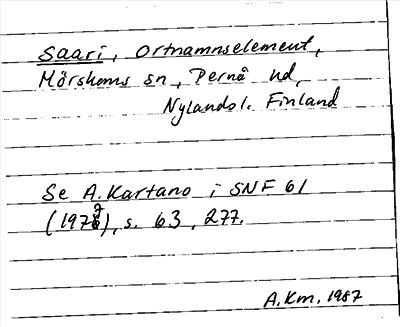 Saari, ortnamnselement,
Mörskoms sn, Pernå hd,
Nylands l. Finland
Se A. Kartano i SNF 61
(1977), s. 63, 277.
A.Km. 1987